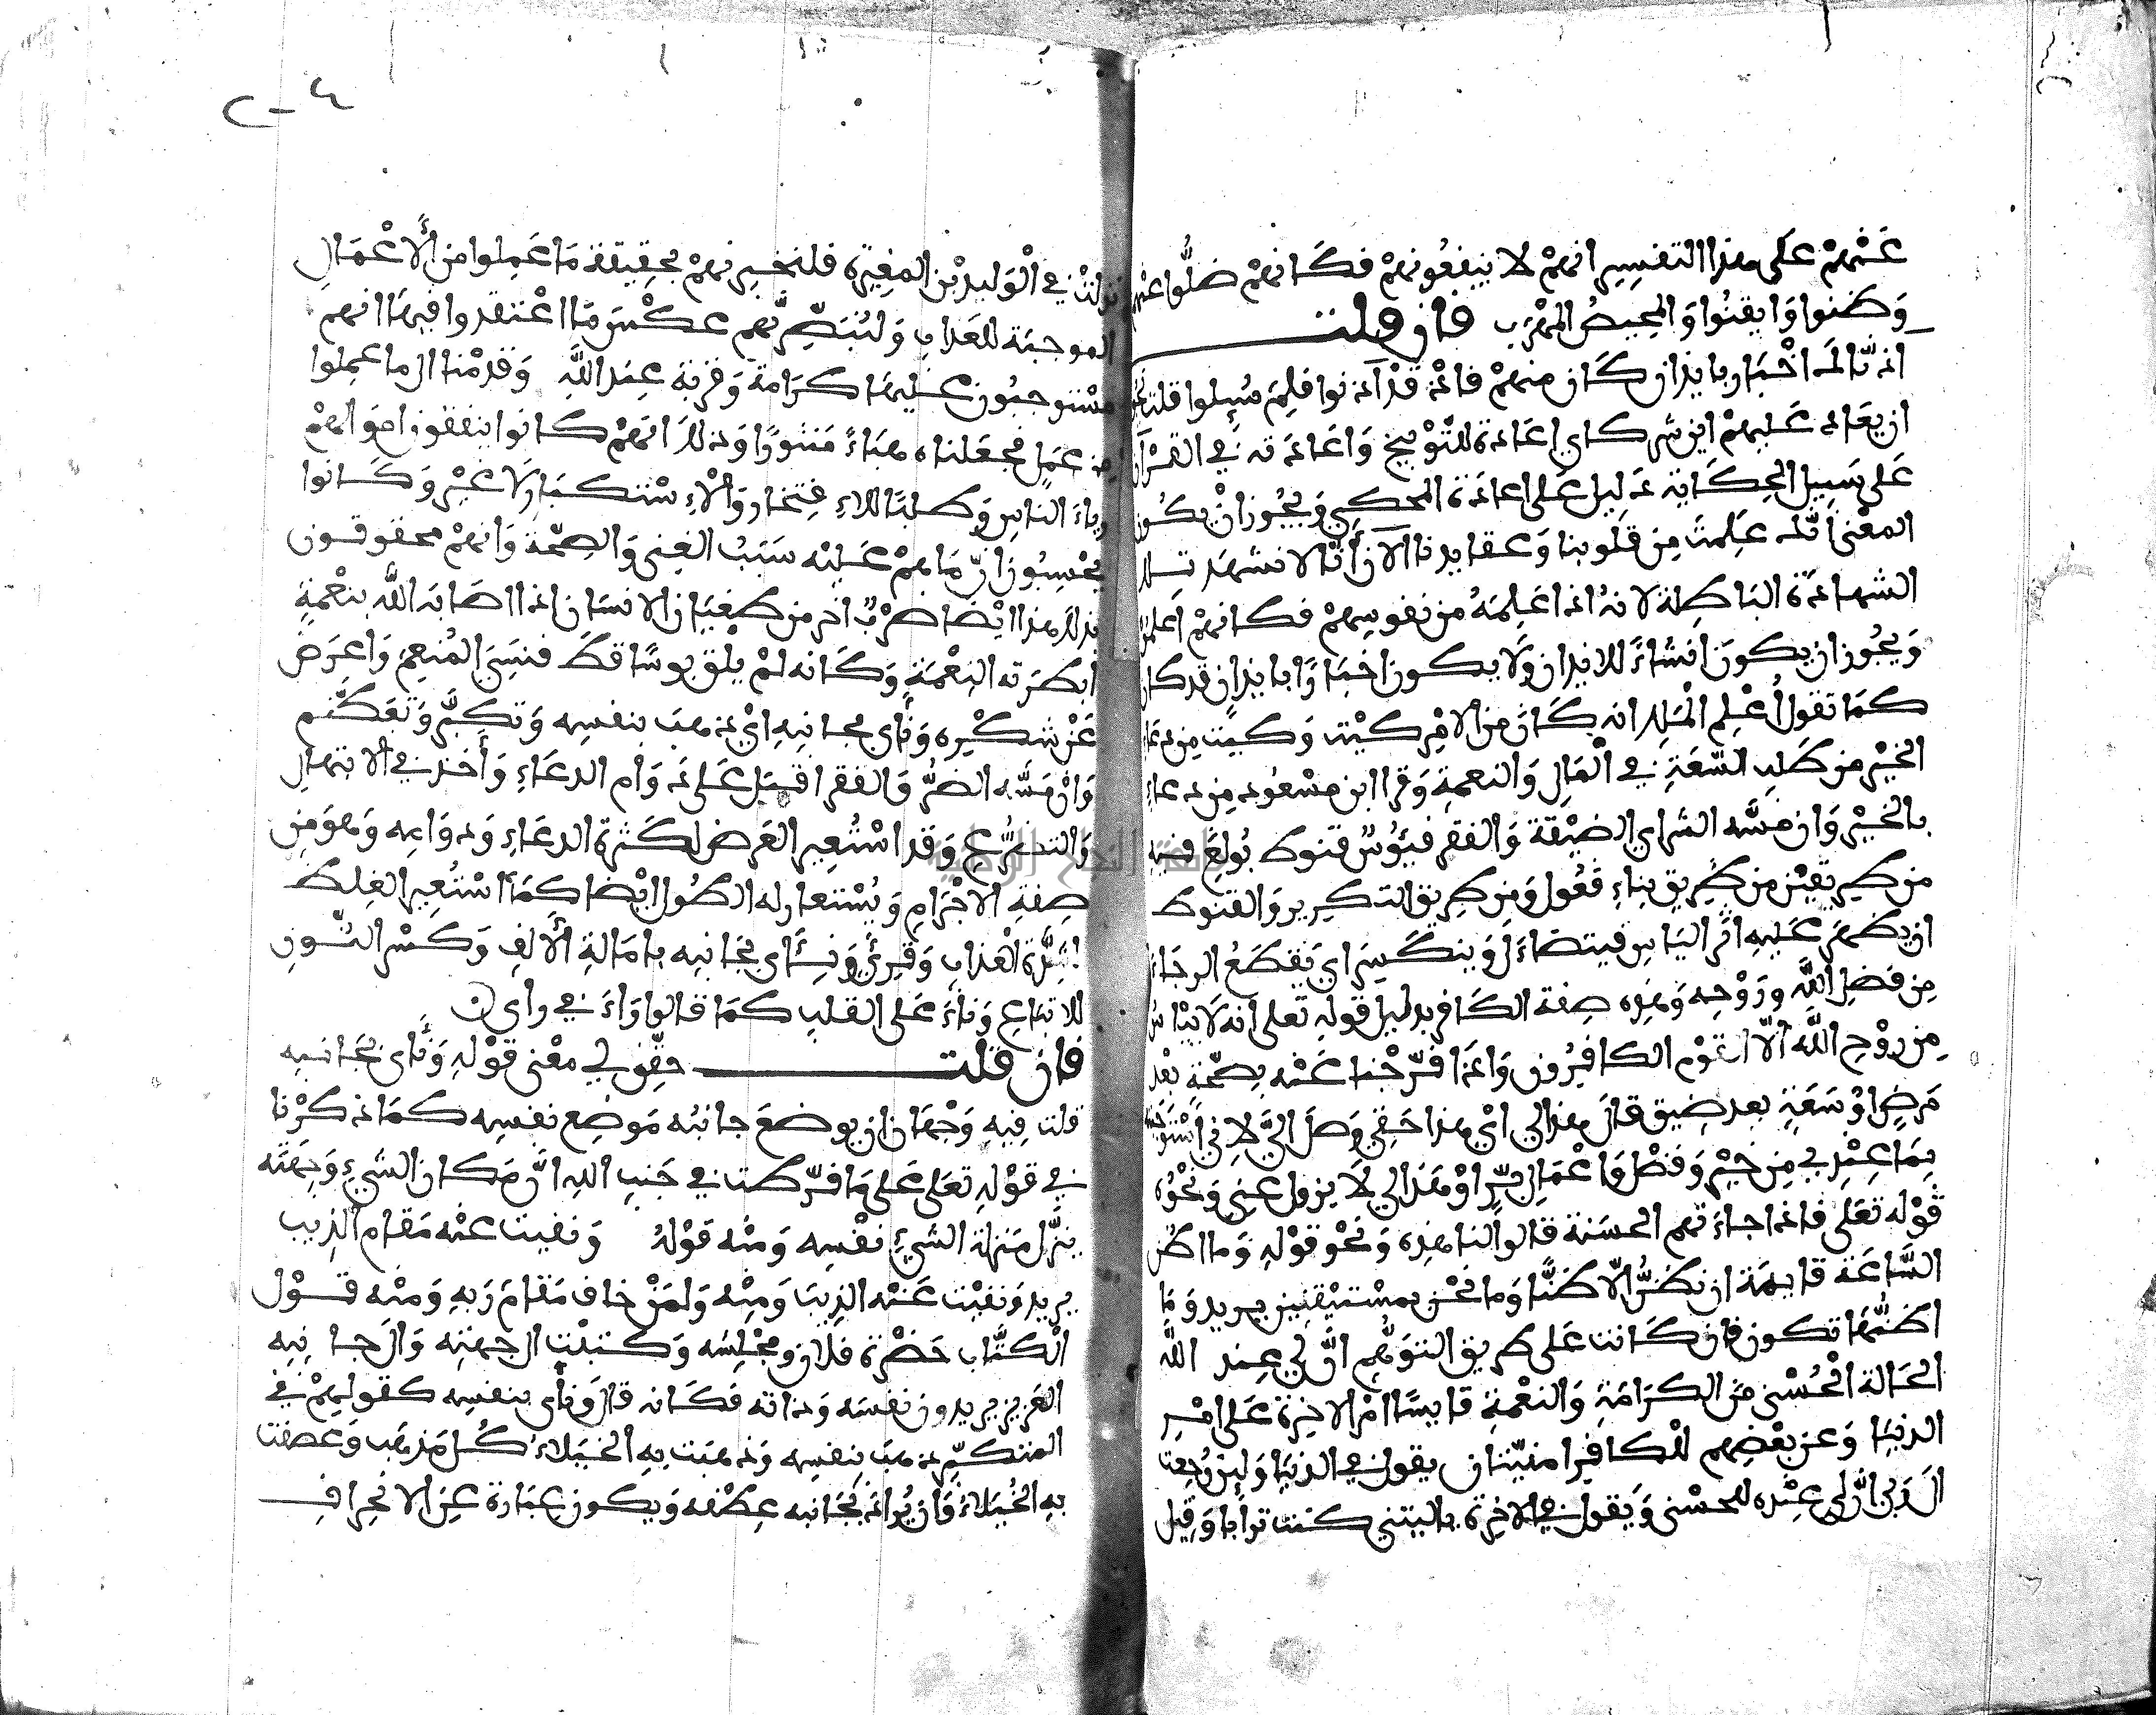 عَنْهُمْ عَلَى هذا التفسِيرِ انهمْ لا ينفعُونهمْ فكَانهمْ ضلُّوا عنهم
وَظنوا وَايقنُوا وَالمحِيصُ المهْرَب فان قلت
اذنّاكَ اخْبَار بايذان كَان منهمْ فاذ قَدْ آذنوا فلِمَ سُيلوا قلت يجوز
ان يعَاد عَليهمْ اين شركاي اعَادة للتّوبيخ وَاعَادته في القرآن
عَلى سَبِيل الحِكَاية دَليل عَلى اعادَة المحكي وَيجُوز انْ يكُون
المعْنى انّك عَلِمتَ مِن قلوبنا وَعقايدنا الآن أنّا لا نشهَد تلك
الشهادَة البَاطِلة لانهُ اذا عَلِمَهُ من نفوسِهمْ فكانهمْ اعلمُوه
وَيجُوز ان يكونَ انشاءً للايذان وَلا يكون اخبَارًا بايذان قد كان
كمَا تقولُ أعْلِم المَلِك انه كَانَ من الامْرِ كيْت وَكيت مِن دعَاءِ
الخيْر من طَلبِ السَّعَةِ في المَالِ وَالنعمةِ وَقرا ابن مسْعُود مِن دعاءٍ
بالخيْرِ وَان مسَّه الشر اي الضيْقة وَالفقر فيَؤُسٌ قنوط بُولِغ فيه
من طريقيْن من طريق بناءِ فَعُول وَمن طريق التكرير وَالقنوط
ان يظهَرَ عَليهِ اثر اليَاس فيتضاءَلَ وَينكسِرَ اي يَقطَعُ الرجَاءَ
مِن فضل اللَّهِ ورَوْحِه وَهَذه صِفة الكَافر بدليل قوله تعَلى انه لاَ ييْاسُ
مِن روْحِ اللَّه الاّ القوْم الكافِرُون وَاذَا فرّجْنا عَنْه بصِحّةٍ بعْد
مَرضٍ اوْ سَعَةٍ بعد ضِيق قالَ هذا لي ايْ هذا حَقي وَصَلَ اليَّ لاني اسْتوجَبته
بِمَا عِنْدِي مِن خيْرٍ وَفضْلٍ وَاعْمَالِ بِرٍّ اوْ هَذا لي لاَ يزول عَني وَنحْوُه
قوْله تعَلى فاذا جاءَتهم الحسَنة قالوا لنا هذِه وَنحْو قوْلهِ وَما اظن
السَّاعَة قايمَة ان نظُنُّ الاّ ظنًّا وَما نحْن بمسْتيْقنِين يريد وَمَا
اظنُّهَا تكون فان كَانت عَلى طريق التوَهُّم انَّ لي عِند اللَّه
الحَالة الحُسْنى منَ الكرَامَةِ وَالنعْمةِ قايسًا امْر الاخِرة عَلى امْرِ
الدنيَا وَعن بعْضِهم للْكافِر امنيّتان يقول في الدنيَا وَلين رُجعت
الى رَبي انَّ لي عنْده للحسْنى وَيقول في الاخِرة يالَيتني كنْت تُرابا وَقيل
نزلتْ في الْوَليد بْن المغِيرة فلنخبرنهمْ بحَقِيقة مَا عَمِلوا من الأعْمَالِ
الموجبَة للعَذاب وَلنُبَصِّرنَّهم عكْسَ مَا اعْتقدوا فيهَا انهم
مسْتوجبُون عَليهَا كرَامةً وَقربة عِند اللَّهِ وَقدمْنا الى ما عمِلوا
من عمَلٍ فجَعَلناه هبَاءً مَنثورًا وَذلكَ انهمْ كانوا ينفقون امْوَالهمْ
رياءَ الناسِ وَطلبًا للافتِخار وَالاسْتكبَار لا غيْر وَكَانوا
يحْسِبُون انّ مَا همْ عَليْه سَبَبُ الغِنى وَالصِحّة وَانهمْ محقوقون
بذلك هذا ايْضا ضرْبٌ آخر من طغيَان الانسَان اذا اصَابَه اللَّه بنعْمةٍ
ابطرَته النِعْمَة وَكَانه لمْ يلق بوسًا قط فنسَيَ المُنعِمَ وَاعرَضَ
عَنْ شكْرِه وَنأى بجانِبهِ ايْ ذهبَ بنفسِه وَتكبَّر وَتعَظّم
وَانْ مَسَّه الضرُّ وَالفقر اقبَل عَلى دَوَام الدعَاءِ وَأخذ في الابتهَالِ
وَالتضرُّع وَقد اسْتُعِير العَرض لكَثرة الدعَاءِ وَدوَامِه وَهوَ مِن
صِفةِ الاجْرَام وَيُسْتعار له الطُول ايْضا كمَا اسْتُعِير الغِلظ
لشدَّة العَذابِ وَقرئَ وَنئَاى بجَانبِه بامَالةِ الألِفِ وَكسْر النّون
للاتبَاع وَناءَ عَلى القلب كمَا قالوا رَاءَ في راى
فان قلت حقِّق لي معْنى قوْلهِ وَنأى بجَانبه
قلت فيهِ وَجْهَان ان يوضعَ جانبُه مَوضع نفسِه كمَا ذكرْنا
في قوْلهِ تعَلى عَلى مَا فرّطت في جَنبِ الله انَّ مَكان الشيءِ وَجهَته
ينزّل مَنزلة الشيءِ نفْسِه وَمنْه قوْلهُ وَنفيت عنْه مَقام الذِيب
يريد وَنفيْت عَنْه الذِيبَ وَمنْه وَلمَنْ خاف مَقامَ رَبهِ وَمنْه قوْل
الكتَّاب حَضْرة فلان وَمجْلِسُه وَكتبْت الى جهتِه وَالى جانِبِه
العَزيز يريدون نفسَه وَذاته فكَانه قالَ وَنأى بنفسِه كقولهِمْ في
المتكبّر ذهَب بنفسِه وَذهبَت بهِ الخيَلاءُ كُل مَذهَب وَعصفت
بهِ الخُيَلاءُ وَان يُرادَ بجَانبه عِطفه وَيكون عِبَارة عَن الانحِراف